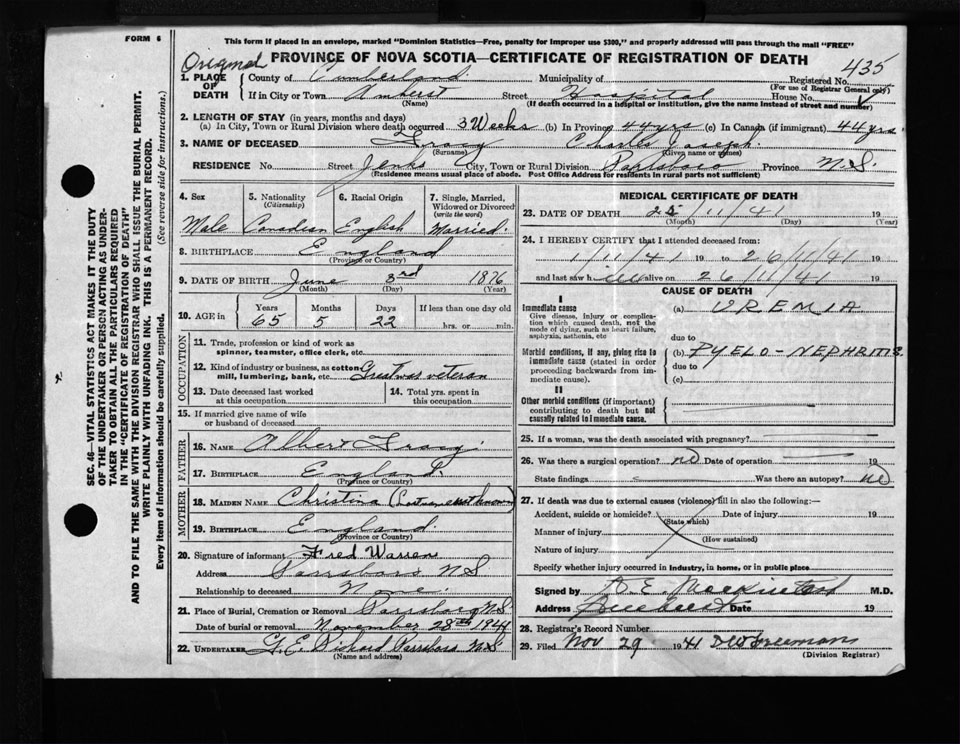 FORM 6
This form if placed in an envelope, marked "Dominion Statistics—Free, penalty for improper use $300," and properly addressed will pass through the mail "FREE"
Original PROVINCE OF NOVA SCOTIA—CERTIFICATE OF REGISTRATION OF DEATH
435
1. PLACE OF DEATH County of Cumberland Municipality of Registered No.
(For use of Registrar General only)
If in City or Town Amherst Street Hospital House No.
(Name) (If death occurred in a hospital or institution, give the name instead of street and number)
2. LENGTH OF STAY (in years, months and days)
(a) In City, Town or Rural Division where death occurred 3 Weeks (b) In Province 44 yrs (c) In Canada (if immigrant) 44 yrs.
3. NAME OF DECEASED Tracy Charles Joseph.
(Surname) (Given name or names)
RESIDENCE No. Street Jenks City, Town or Rural Division Parrsboro Province N.S.
(Residence means usual place of abode. Post Office Address for residents in rural parts not sufficient)
4. Sex 5. Nationality (Citizenship) 6. Racial Origin 7. Single, Married, Widowed or Divorced (write the word)
Male Canadian English Married.
8. BIRTHPLACE England
(Province or Country)
9. DATE OF BIRTH June 3rd 1876
(Month) (Day) (Year)
10. AGE in Years Months Days If less than one day old
65 5 22 hrs. or min.
OCCUPATION
11. Trade, profession or kind of work as spinner, teamster, office clerk, etc.
12. Kind of industry or business, as cotton mill, lumbering, bank, etc. Great war veteran
13. Date deceased last worked at this occupation
14. Total yrs. spent in this occupation
15. If married give name of wife or husband of deceased
FATHER
16. NAME Albert Tracy.
17. BIRTHPLACE England.
(Province or Country)
MOTHER
18. MAIDEN NAME Christina (Last name not known)
19. BIRTHPLACE England.
(Province or Country)
20. Signature of informant Fred Warren
Address Parrsboro N.S
Relationship to deceased None.
21. Place of Burial, Cremation or Removal Parrsboro N.S.
Date of burial or removal November 28th 1941
22. UNDERTAKER G.E. Pickard Parrsboro N.S
(Name and address)
MEDICAL CERTIFICATE OF DEATH
23. DATE OF DEATH 25/11/41 19
(Month) (Day) (Year)
24. I HEREBY CERTIFY that I attended deceased from:
1/11/41 19 to 26/11/41 19
and last saw h alive on 26/11/41 19
CAUSE OF DEATH
I
Immediate cause (a) UREMIA
Give disease, injury or complication which caused death, not the mode of dying, such as heart failure, asphyxia, asthenia, etc
due to
Morbid conditions, if any, giving rise to immediate cause (stated in order proceeding backwards from immediate cause). (b) PYELO-NEPHRITIS
due to
(c)
II
Other morbid conditions (if important) contributing to death but not causally related to immediate cause.
25. If a woman, was the death associated with pregnancy?
26. Was there a surgical operation? no Date of operation 19
State findings Was there an autopsy? no
27. If death was due to external causes (violence) fill in also the following:—
Accident, suicide or homicide? Date of injury 19
(State which)
Manner of injury
(How sustained)
Nature of injury
Specify whether injury occurred in industry, in home, or in public place
Signed by D. E. Mackintosh M.D.
Address Amherst Date 19
28. Registrar's Record Number
29. Filed Nov 29 1941
(Division Registrar)
SEC. 46—VITAL STATISTICS ACT MAKES IT THE DUTY
OF THE UNDERTAKER OR PERSON ACTING AS UNDER-
TAKER TO OBTAIN ALL THE PARTICULARS REQUIRED
IN THE "CERTIFICATE OF REGISTRATION OF DEATH"
AND TO FILE THE SAME WITH THE DIVISION REGISTRAR WHO SHALL ISSUE THE BURIAL PERMIT.
WRITE PLAINLY WITH UNFADING INK. THIS IS A PERMANENT RECORD.
Every item of information should be carefully supplied. (See reverse side for instructions.)